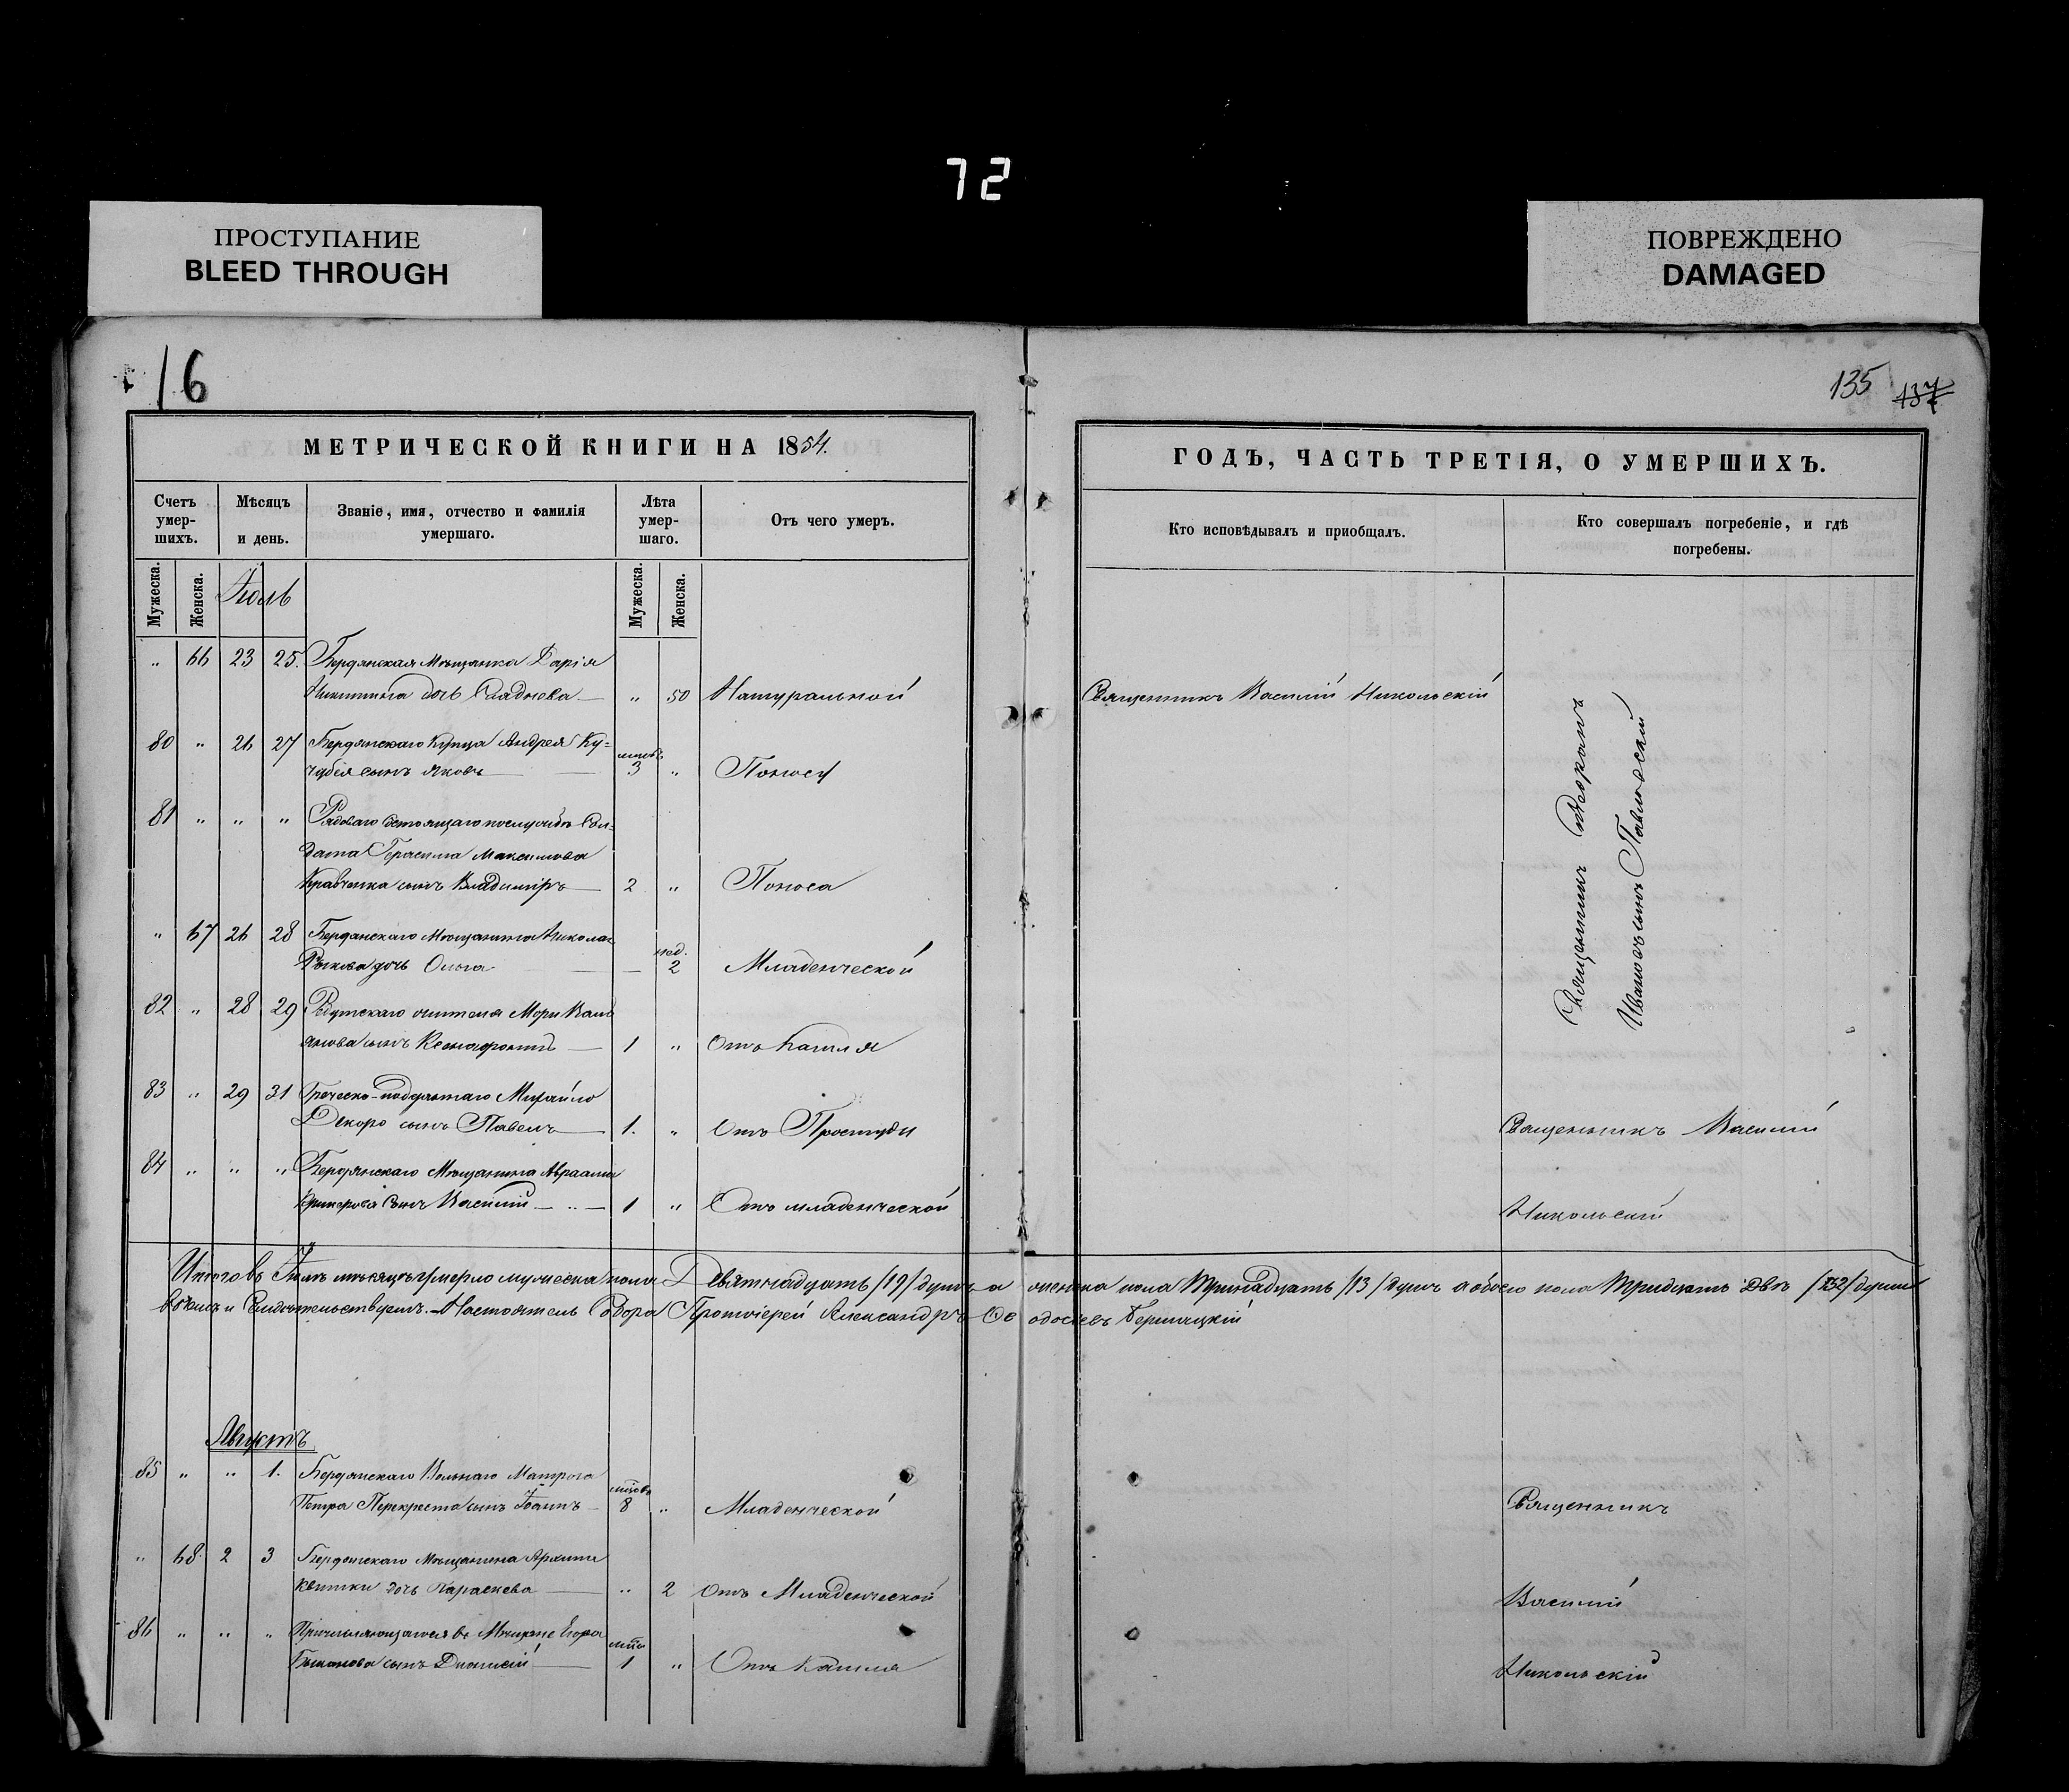 72
ПРОСТУПАНИЕ
BLEED THROUGH
ПОВРЕЖДЕНО
DAMAGED
16
135 137
МЕТРИЧЕСКОЙ КНИГИ НА 1854.
Счетъ умер-шихъ.
Мѣсяцъ и день.
Званіе, имя, отчество и фамилія умершаго.
Лѣта умер-шаго.
Отъ чего умеръ.
Мужеска. Женска. Іюль Мужеска. Женска.
„ 66 23 25. Бердянская Мѣщанка Дарія
Никитина дочь — „ 50 Натуральной
80 „ 26 27 Бердянскаго Купца Андрея Ку=
чубея сынъ Яковъ — 3 „ Поноса
81 „ „ „ Рядоваго Сол-
дата Герасима Максимова
Кравченка сынъ Владиміръ — 2 „ Поноса
„ 67 26 28 Бердянскаго Мѣщанина Николая
Рыкова дочь Ольга — нед. 2 Младенческой
82 „ 28 29
сынъ Ксенофонтъ — 1 „ Отъ Кашля
83 „ 29 31 Греческо-подданнаго Михайло
Декоро сынъ Павелъ — 1. „ Отъ Простуды
84 „ „ „ Бердянскаго Мѣщанина Авраама
сынъ Василій — „ — 1 „ Отъ младенческой
Итого въ Іюлѣ мѣсяцѣ умерло мужеска пола Девятнадцать /19/ душъ а женска пола Тринадцать /13/ душъ а обоего пола Тридцать двѣ /32/ души
Свидѣтельствуемъ. Настоятель Собора Протоіерей Александръ Ѳеодосіевъ
Августъ
85 „ „ 1. Бердянскаго Вольнаго Матроса
Петра Перекреста сынъ Іоаннъ — 8 „ Младенческой
„ 68. 2 3 Бердянскаго Мѣщанина Архипа
Квитки дочь Параскева — „ 2 Отъ Младенческой
86 „ „ „ Причисляющагося въ Мѣщане Егора
сынъ Діонисій — 1 „ Отъ Кашля
ГОДЪ, ЧАСТЬ ТРЕТІЯ, О УМЕРШИХЪ.
Кто исповѣдывалъ и приобщалъ.
Кто совершалъ погребеніе, и гдѣ погребены.
Священникъ Василій Никольскій
Священникъ
Павловскій
Священникъ Василій
Никольскій
Священникъ
Василій
Никольскій